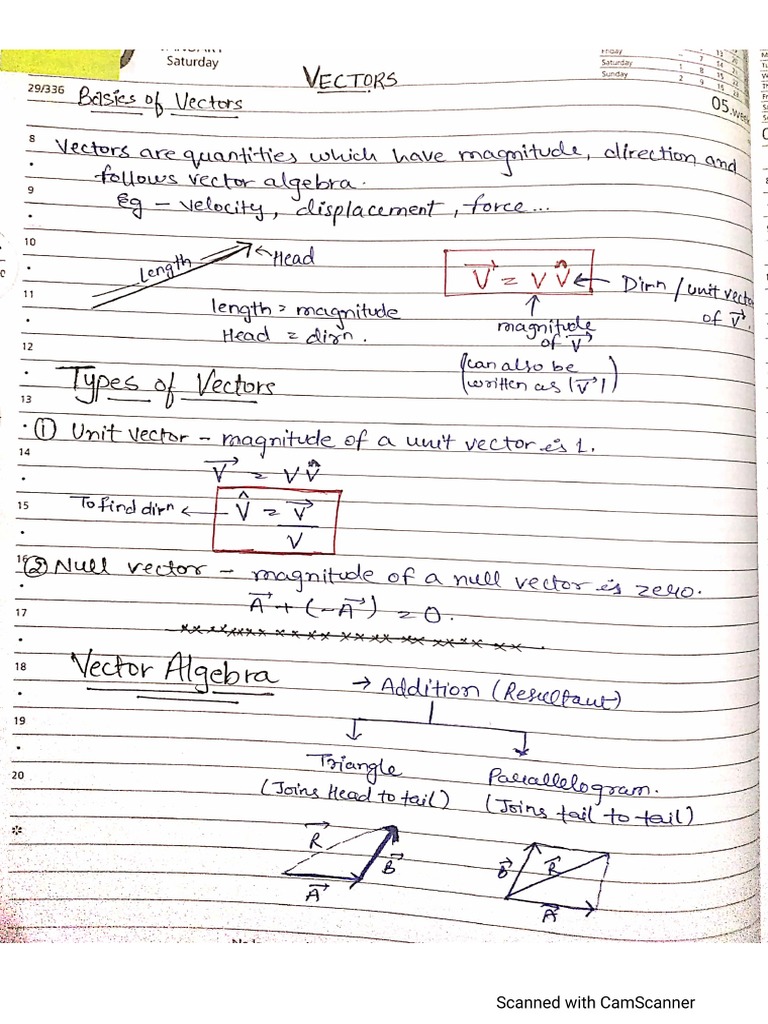 Saturday
VECTORS
Friday 7 14 21
Saturday 1 8 15 22
Sunday 2 9 16
29/336 Basics of Vectors
05.week
8 Vectors are quantities which have magnitude, direction and
9 follows vector algebra.
Eg – velocity, displacement, force...
10
Length ← Head
V⃗ = V V̂ ← Dirn / unit vector
11
length = magnitude
Head = dirn.
↑ magnitude of V⃗
of V⃗.
12
(can also be
written as |V⃗|)
Types of Vectors
13
① Unit vector – magnitude of a unit vector is 1.
14
V⃗ = V V̂
15 To find dirn ← V̂ = V⃗ / V
16 ② Null vector – magnitude of a null vector is zero.
A⃗ + (-A⃗) = 0.
17
18 Vector Algebra → Addition (Resultant)
19
Triangle Parallelogram.
20 (Joins Head to tail) (Joins tail to tail)
R⃗ B⃗ A⃗
B⃗ R⃗ A⃗
Scanned with CamScanner